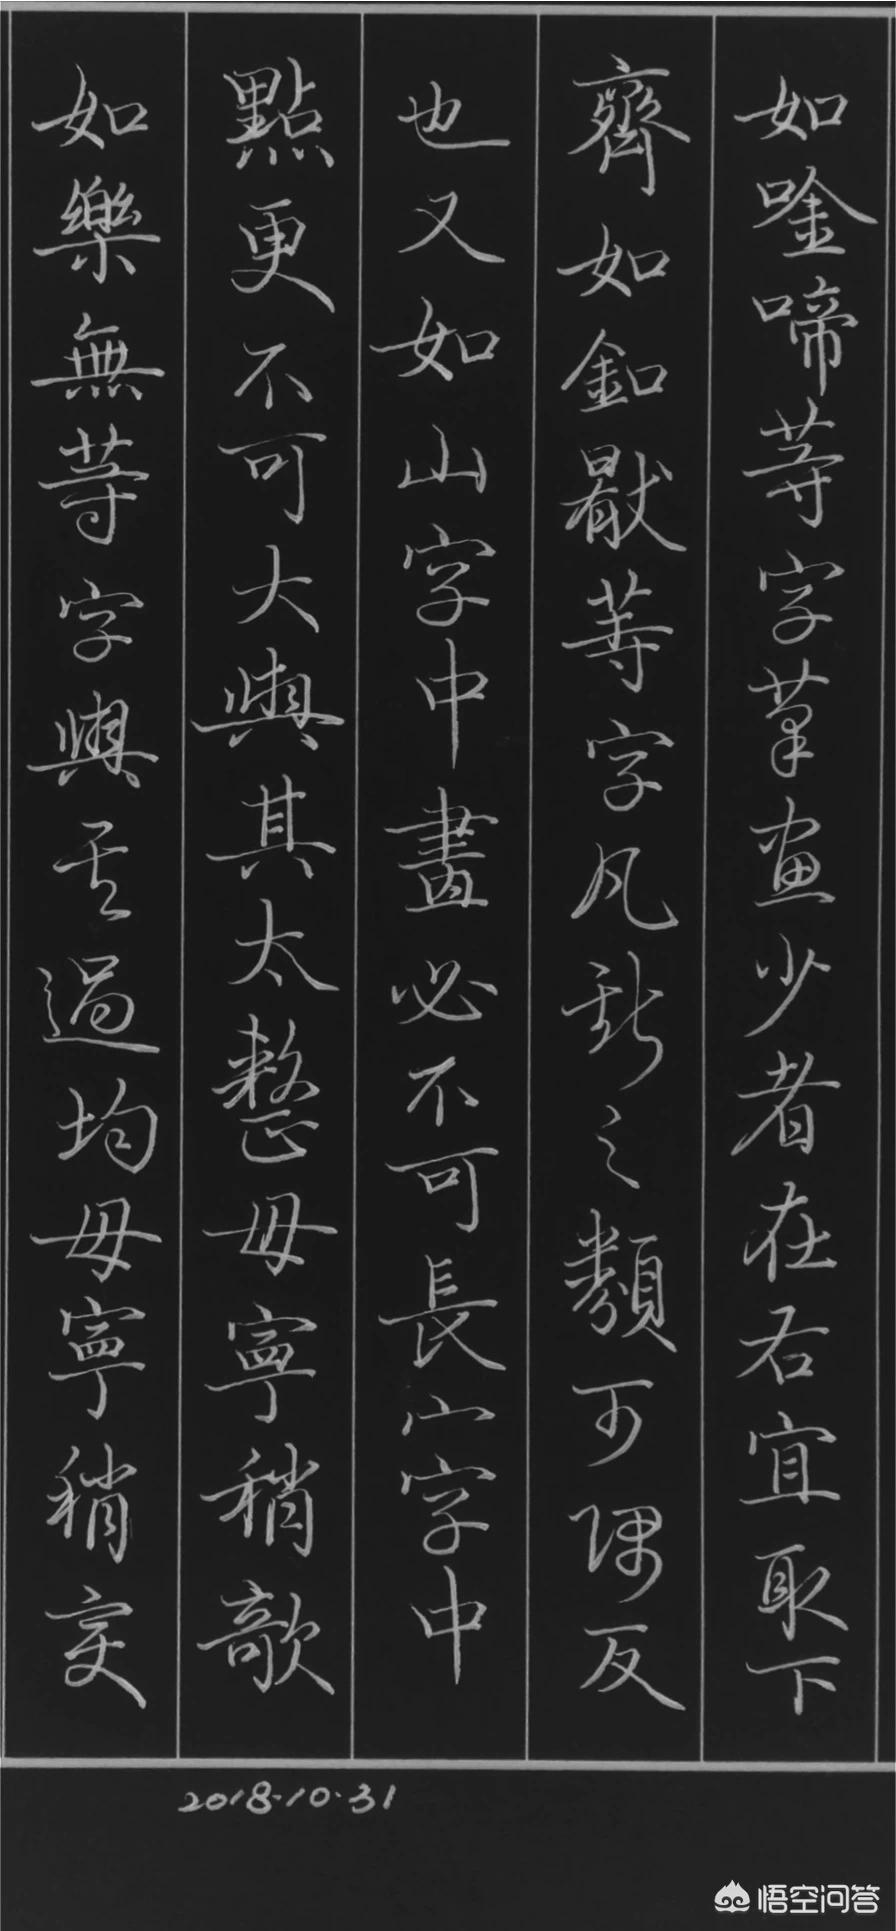 如唫啼等字筆画少者在右宜取下
齊如釦猒等字凡斯之類可隅反
也又如山字中畫必不可長宀字中
點更不可大與其太整毋寧稍欹
如樂無等字與其過均毋寧稍变
2018·10·31
悟空问答